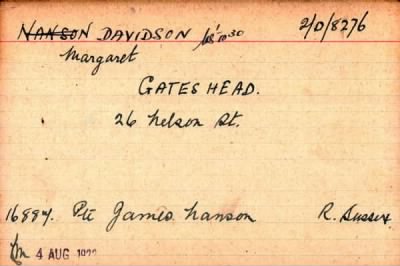 NANSON DAVIDSON 2/D/8276
Margaret
GATESHEAD.
26 Nelson St.
16884. Pte James Nanson R. Sussex
4 AUG